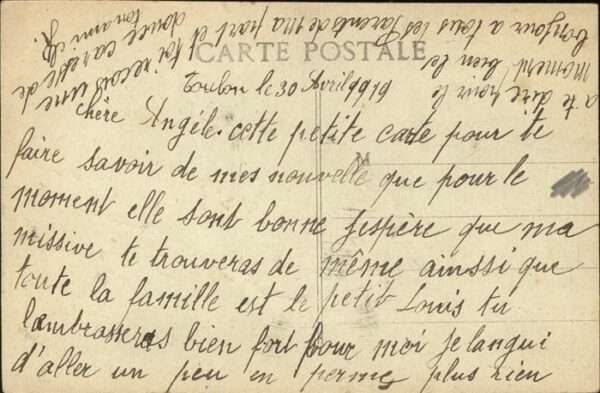 CARTE POSTALE
Toulon le 30 Avril 1919
chère Angèle. cette petite carte pour te
faire savoir de mes nouvelle que pour le
moment elle sont bonne j'espère que ma
missive te trouveras de même ainssi que
toute la famille est le petit Louis tu
lambrasseras bien fort pour moi je langui
d'aller un peu en perme, plus rien
a te dire pour le
moment bien le
bonjour a tous tes Parents de ma part et
toi recois une
douce caresse de
ton ami